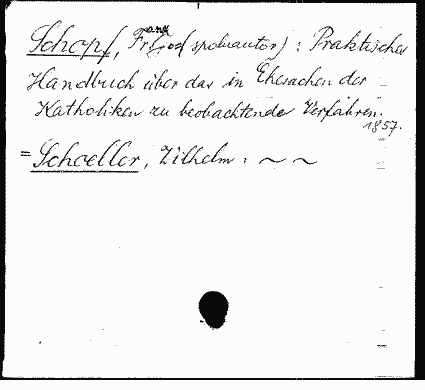 Schopf, Franz Jos (spoluautor): Praktisches
Handbuch über das in Ehesachen der
Katholiken zu beobachtende Verfahren.
1857.
= Schoeller, Vilhelm: ~ ~